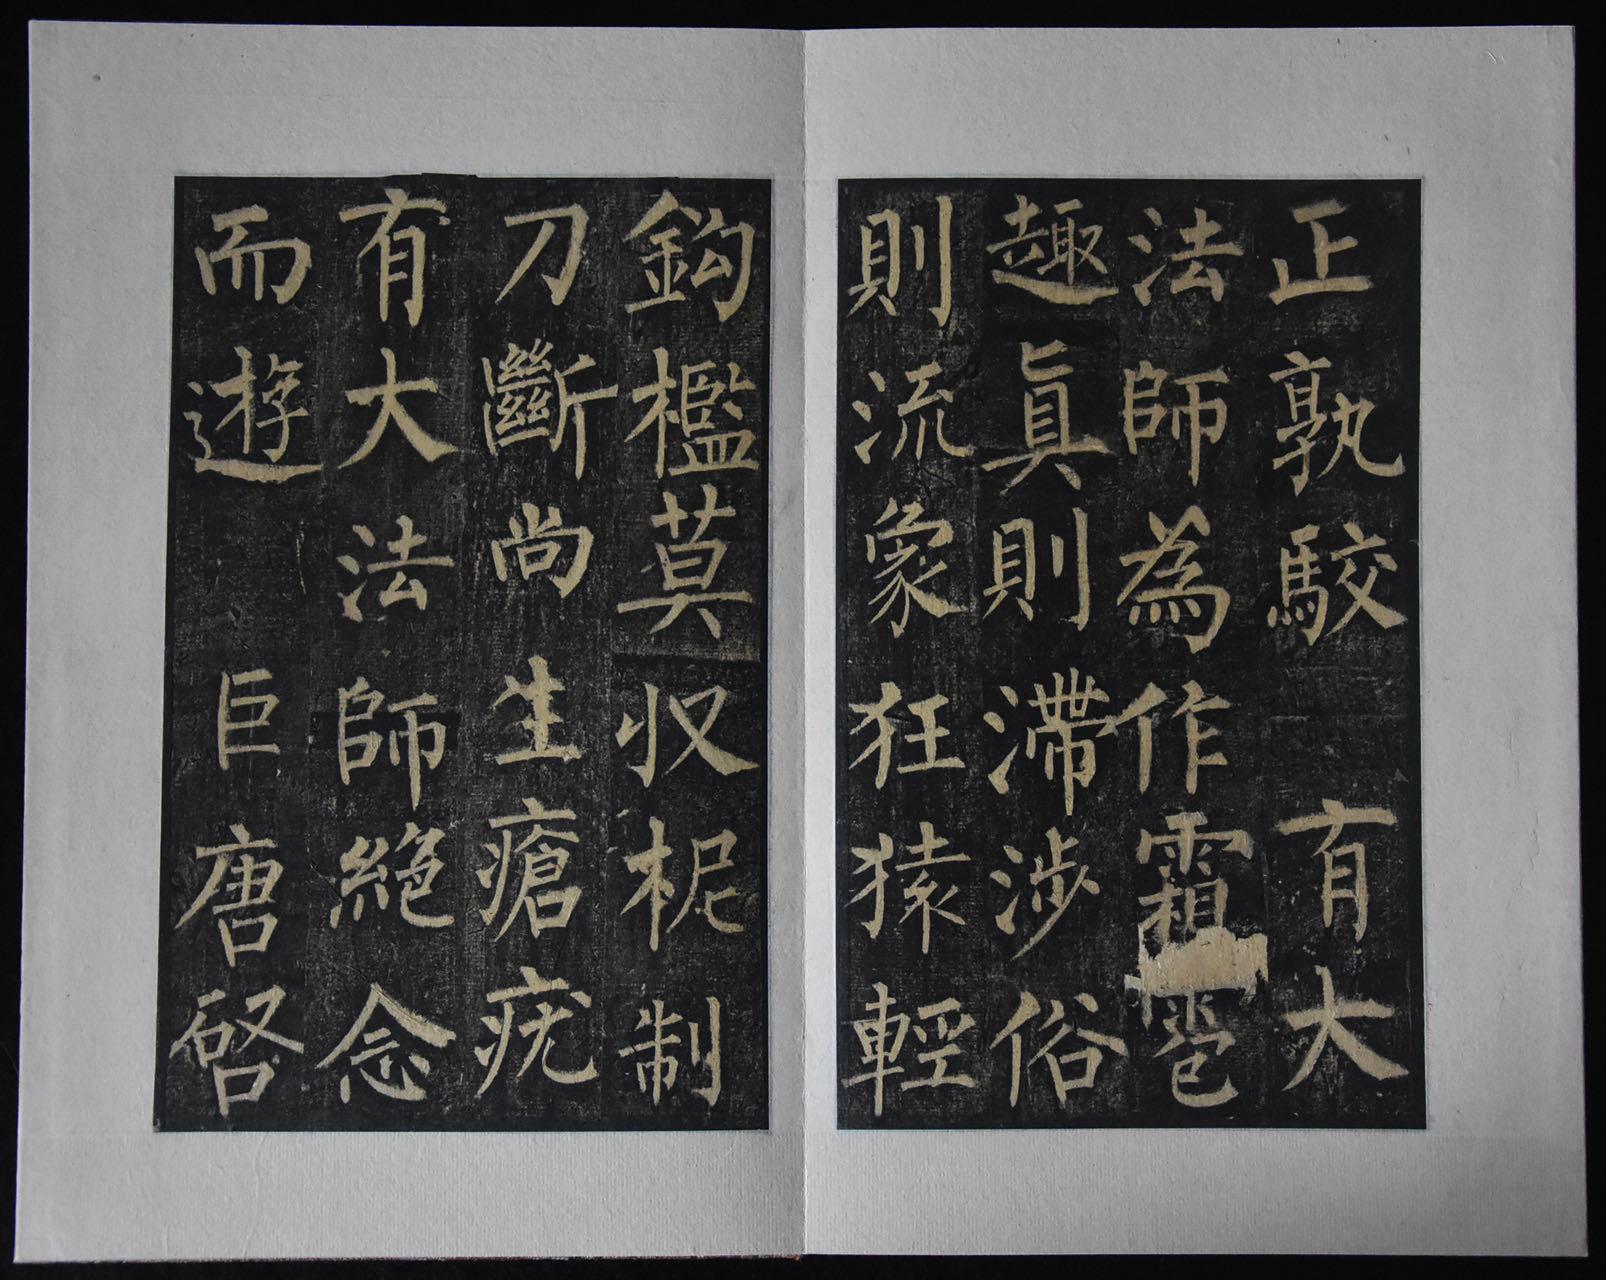 正孰駮　有大
法師為作霜雹
趣眞則滯涉俗
則流象狂猿輕
鈎檻莫収柅制
刀斷尚生瘡疣
有大法師絕念
而遊　巨唐啓